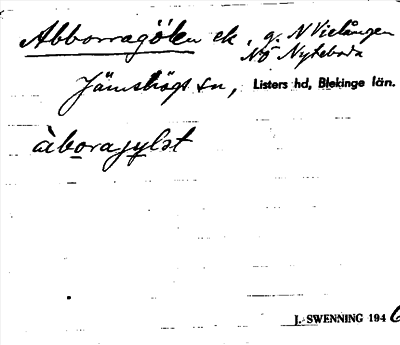 Abborragölen ek, g. N Vielången
NÖ Nyteboda
Jämshögs sn, Listers hd, Blekinge län.
àboragylət
J. SWENNING 1946